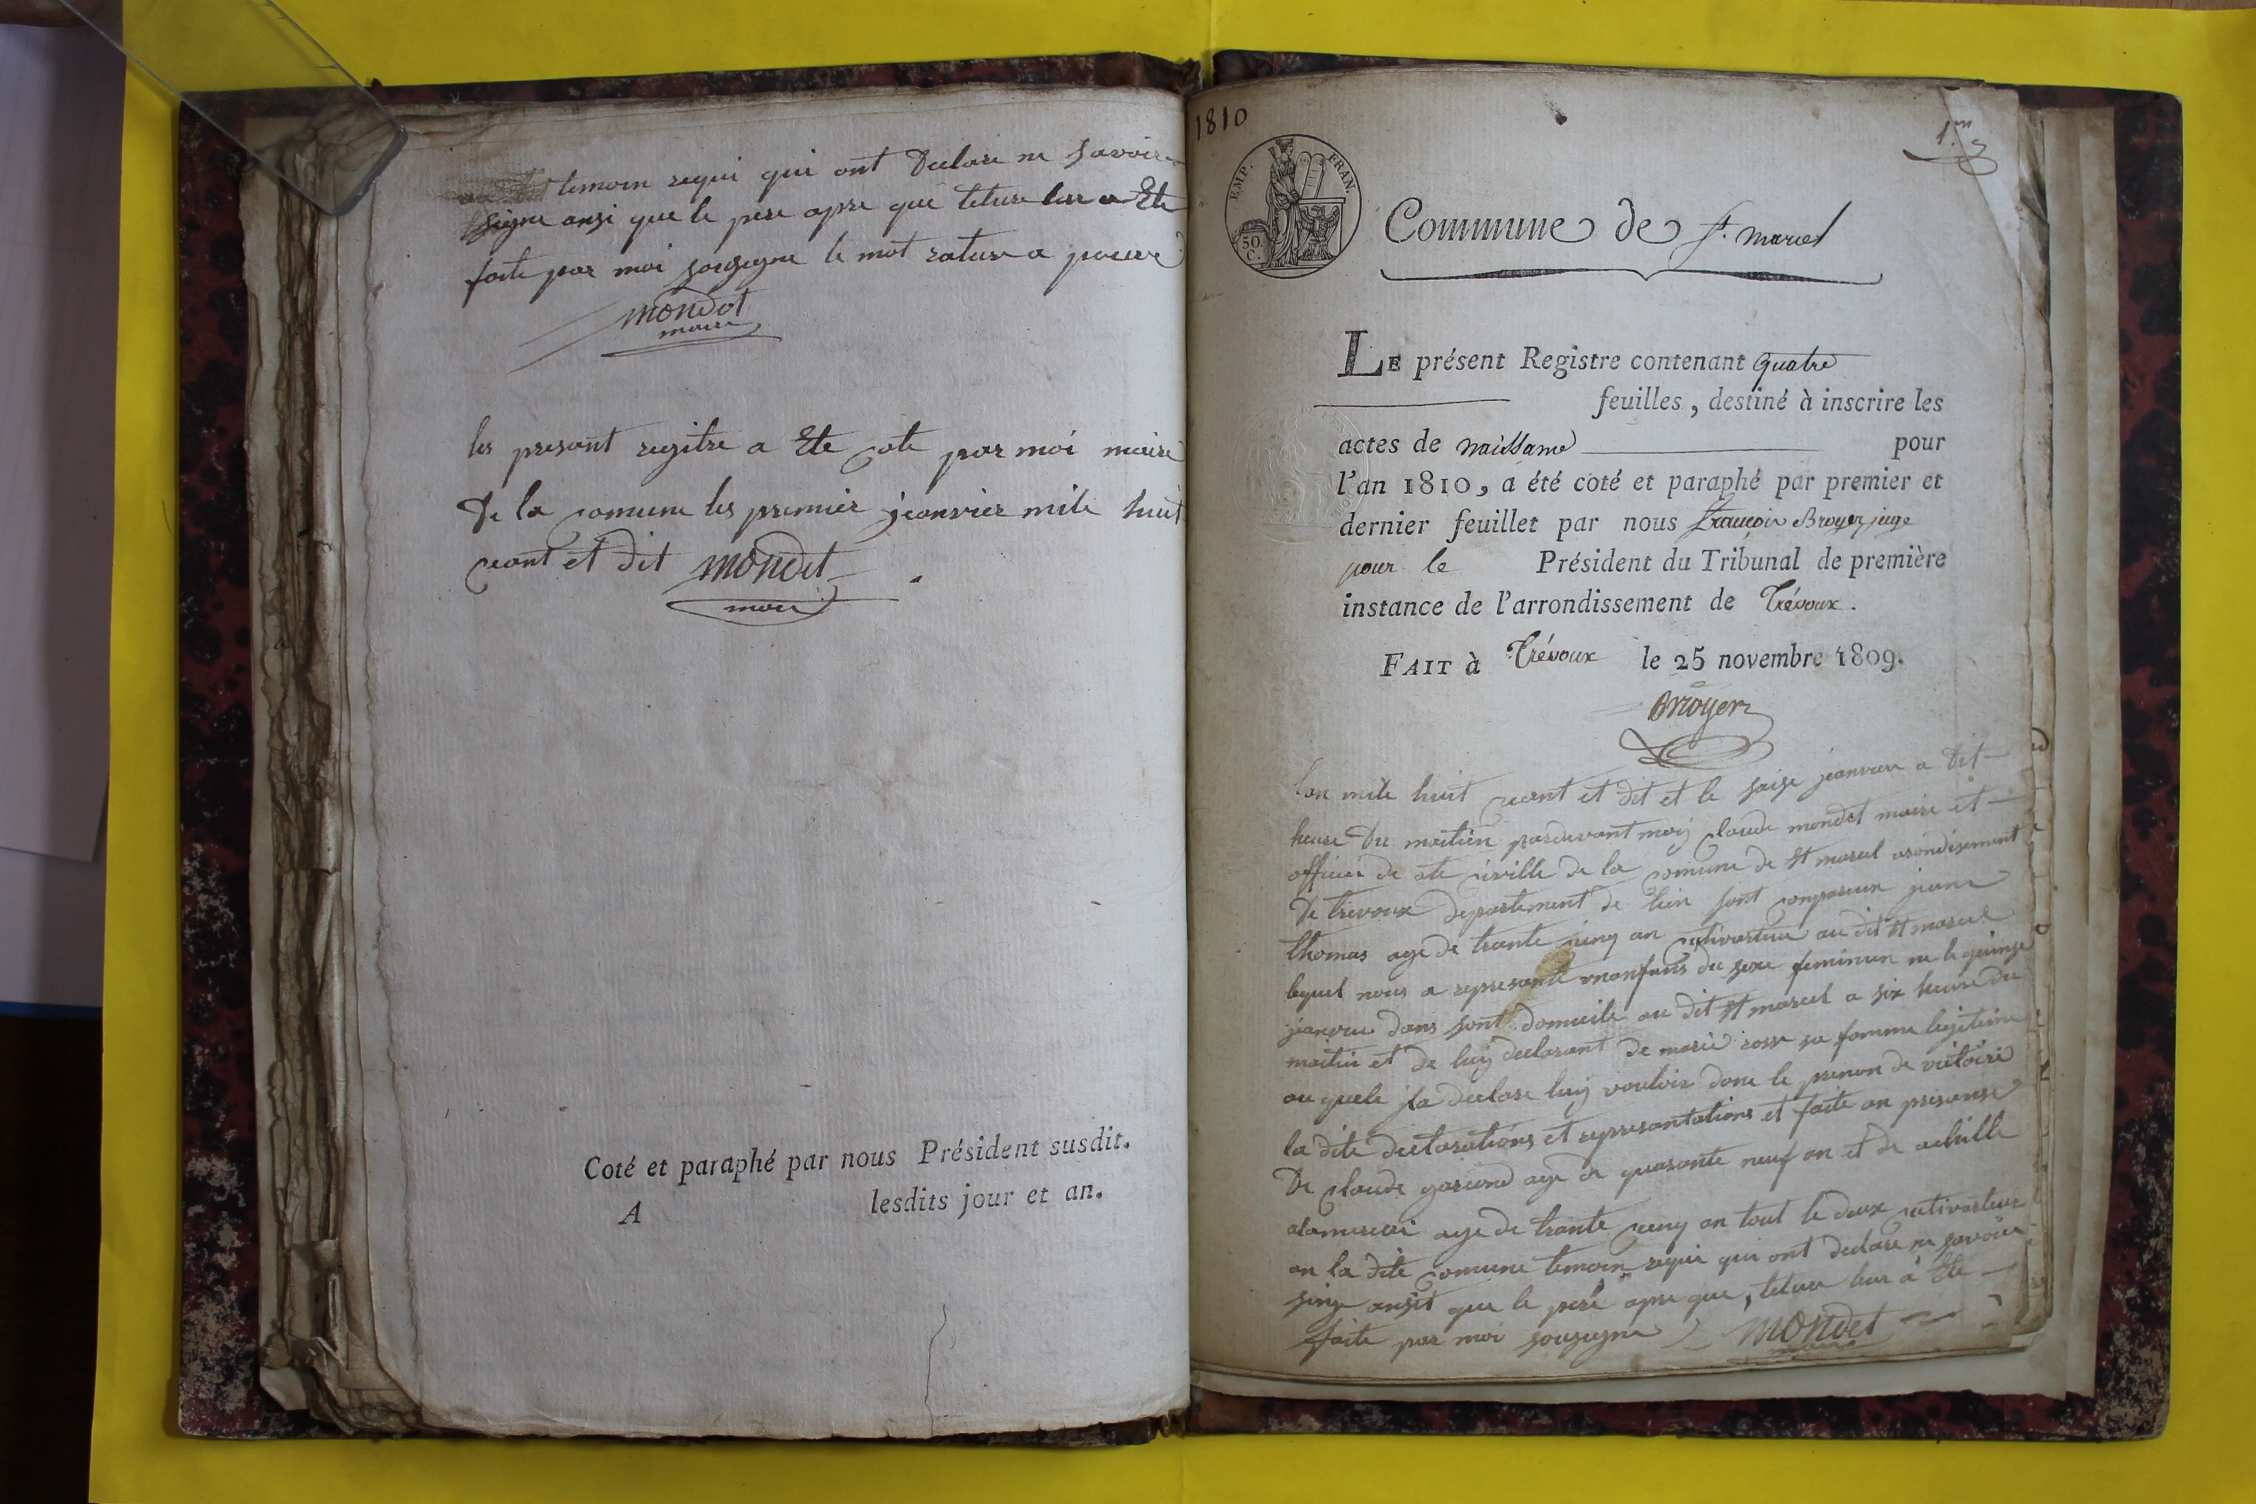 temoin requi qui ont Declare ne savoir
signe ansi que le pere apre que leture leur a Ete
faite par moi sousigne le mot rature a
mondet
maire
les presant regitre a Ete cote par moi maire
De la comune les premier jeanvier mile huit
cent et dit mondet
maire
Coté et paraphé par nous Président susdit.
A lesdits jour et an.
1810
1.er
EMP. FRAN.
50.
C.
Commune de St. marcel
LE présent Registre contenant quatre
feuilles, destiné à inscrire les
actes de naissance pour
l'an 1810, a été coté et paraphé par premier et
dernier feuillet par nous françois Broyer juge
pour le Président du Tribunal de première
instance de l'arrondissement de Trévoux.
FAIT à Trévoux le 25 novembre 1809.
Broyer
l'an mile huit cent et dit et le saise jeanvier a Dit
heure Du maitien pardevant moy claude mondet maire et
officier de ate civille de la comune de St marcel arondisement
De trevoux departement de lein sont compareux jeane
thomas age de trante cinq an cultivasteur au dit St marcel
lequel nous a represanté unanfans du sexe feminien ne le quinze
jeanvie dans sont domicile au dit St marcel a six heure du
maitin et de luy declarant de marie rosse sa famme legitime
au quele jla declare luy vouloir done le prenon de victoire
la dite declarations et represantations et faite an presanse
De claude age de quarante neuf an et de achille
age de trante cinq an tout le deux cultivasteur
an la dite comune temoin requi qui ont declare ne savoir
signe ansit que le pere apre que, leture leur a Ete
faite par moi sousigne mondet
maire